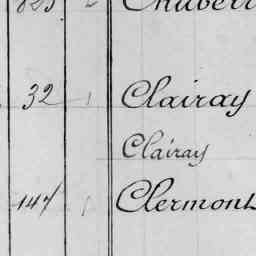 825 Chubert
32 Clairay
Clairay
147 Clermont